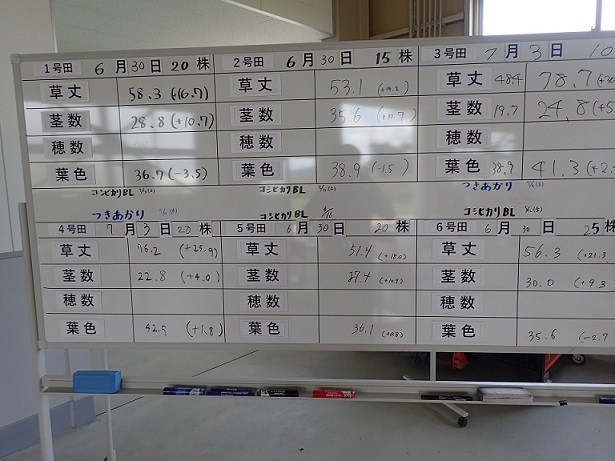 1号田 6月30日 20株
草丈 58.3 (+16.7)
茎数 28.8 (+10.7)
穂数
葉色 36.7 (-3.5)
コシヒカリBL
2号田 6月30日 15株
草丈 53.1
茎数 35.6
穂数
葉色 38.9 (-1.5)
コシヒカリBL
3号田 7月3日
草丈 48.4 78.7
茎数 19.7 24.8
穂数
葉色 38.9 41.3
つきあかり
つきあかり
4号田 7月3日 20株
草丈 (+25.9)
茎数 22.8 (+4.0)
穂数
葉色 (+1.8)
コシヒカリBL
5号田 6月30日 20株
草丈 51.4 (+18.0)
茎数
穂数
葉色 36.1
コシヒカリBL
6号田 6月30日 25株
草丈 56.3 (+21.3
茎数 30.0 (+9.3
穂数
葉色 35.6